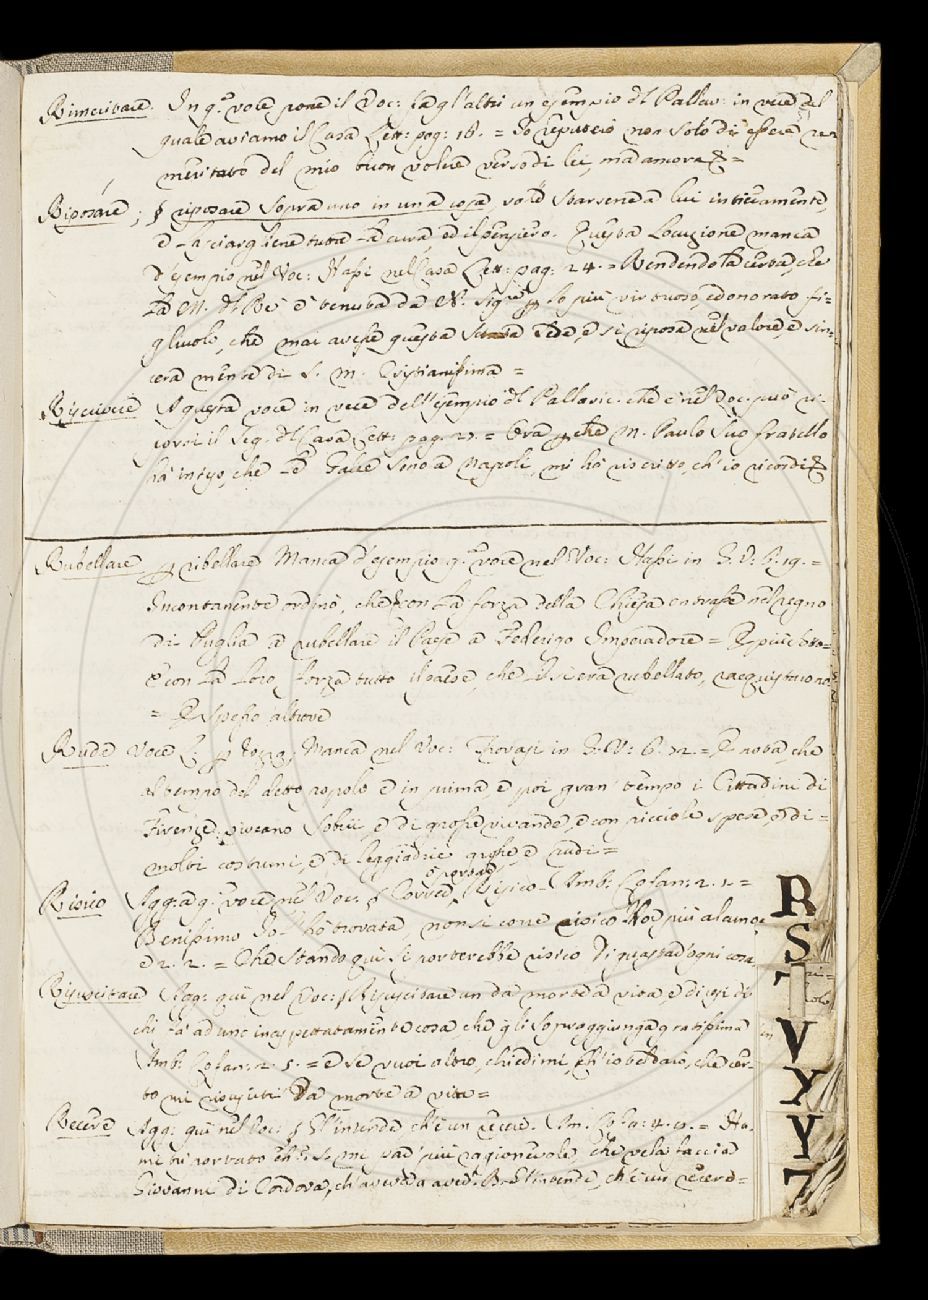 Rimeritare. In q.ª voce pone il Voc: fa gl'altri un esempio del Pallav: in vece del
quale aviamo il Casa Lett: pag: 16. = Io reputerò non solo di esser ri
meritato del mio buon volere verso di lei, ma amora &=
Riposare; § riposare sopra uno in una cosa, vale Starsene a lui intieramente,
e lasciargliene tutta la cura, ed il pensiero. Questa Locuzione manca
d'esempio nel Voc: Hassi nel Casa Lett: pag: 24. = Rendendola certa, che
la M. del Re è tenuta da N. Sig.re p lo più virtuoso, ed onorato fi=
gliuolo, che mai avesse questa Santa Sede, e si riposa nel valore, e sin=
cera mente di S. M. Cristianissima =
Riscrivere A questa voce in vece dell'esempio del Pallavic: che è nel Voc: può ri-
corsi il Seg. del Casa Lett: pag: 27. = Ora p che M. Paulo suo fratello
ha inteso, che le Galee sono a Napoli, mi ha riscritto, ch'io ricordi &
Rubellare p ribellare Manca d'esempio q.ª voce nel Voc: Hassi in G. V: 6. 19. =
Incontanente ordinò, che con la forza della Chiesa entrasse nel regno
di Puglia a rubellare il Paese a Federigo Imperadore = E più
E con la loro forza tutto il paese, che li si era rubellato, racquistarono
= E spesso altrove
Rude Voce L: p rozzo; Manca nel Voc: Trovasi in G. V: 6. 72. = E nota, che
al tempo del detto popolo e in prima e poi gran tempo i Cittadini di
Firenze viveano Sobrii e di grosse vivande, e con picciole spese, e di=
molti costumi, e di leggiadrie grosse e rudi =
o portare
Risico Agg: a q.ª voce nel Voc: § Correr, Risico - Amb: Cofan: 2. 1. =
Benissimo Io l'ho trovata, non si corre risico Noe più al
e 2. 2. = Che stando qui si porterebbe risico Di guastar ogni cosa.
Risuscitare Agg: qui nel Voc: § Risuscitare un da morte a vita e di chi
chi fa ad uno inaspettatamente cosa che gli sopraggiunga gratissima
Amb: Cofan: 2. 5. = e se vuoi altro, chiedimi, ch'io tel daro, che cer-
to mi risusciti Da morte a vita =
Recere Agg: qui nel Voc: § E' s'intende ch'è un recere. Am. Cofa: 4. 9. = Ha
mi tu portato
Giovanni di Cordova, ch'aveva a aver. B. E' s'intende, ch'è un recere =
R
S
T
V
Y
Y
Z